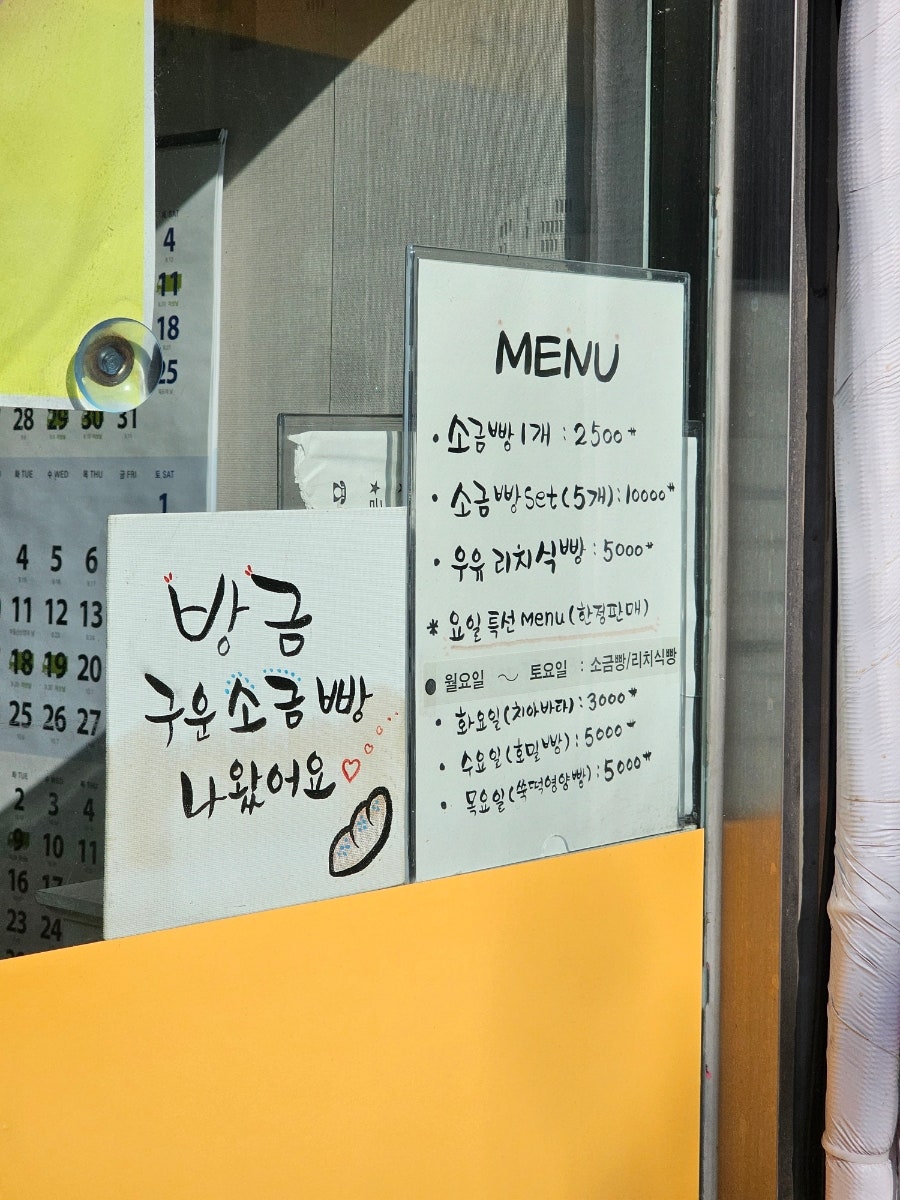 방금
구운 소금빵
나왔어요
MENU
• 소금빵 1개 : 2500₩
• 소금빵 Set(5개) : 10000₩
• 우유 리치식빵 : 5000₩
* 요일 특선 Menu (한정판매)
● 월요일 ～ 토요일 : 소금빵/리치식빵
• 화요일(치아바타) : 3000₩
• 수요일(호밀빵) : 5000₩
• 목요일(쑥떡영양빵) : 5000₩
SAT
4
11
18
25
28 29 30 31
화 TUE 수 WED 목 THU 금 FRI 토 SAT
1
4 5 6
11 12 13
18 19 20
25 26 27
화 TUE 수 WED 목 THU
2 3 4
9 10 11
16 17
23 24